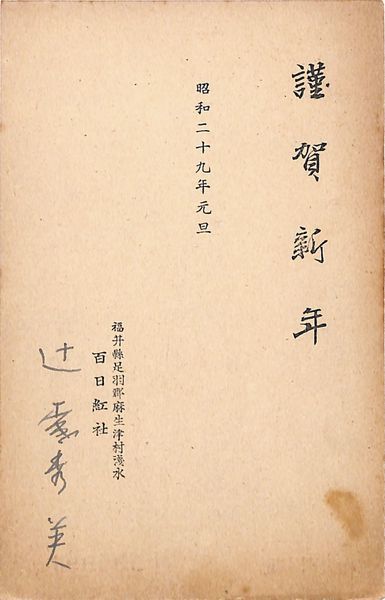 謹賀新年
昭和二十九年元旦
福井縣足羽郡麻生津村淺水
百日紅社
辻 秀美